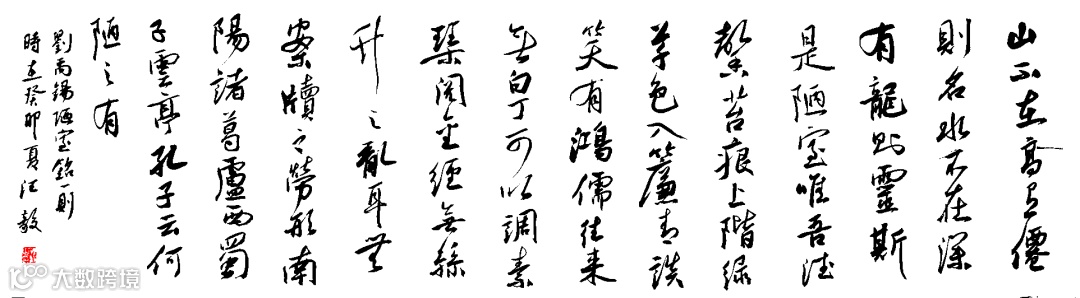 山不在高有僊
則名水不在深
有龍則靈斯
是陋室唯吾德
馨苔痕上階緑
草色入簾青談
笑有鴻儒往来
無白丁可以調素
琴閲金經無絲
竹之亂耳無
案牘之勞形南
陽諸葛廬西蜀
子雲亭孔子云何
陋之有
劉禹錫陋室銘一則
時在癸卯夏 毅
大数跨境